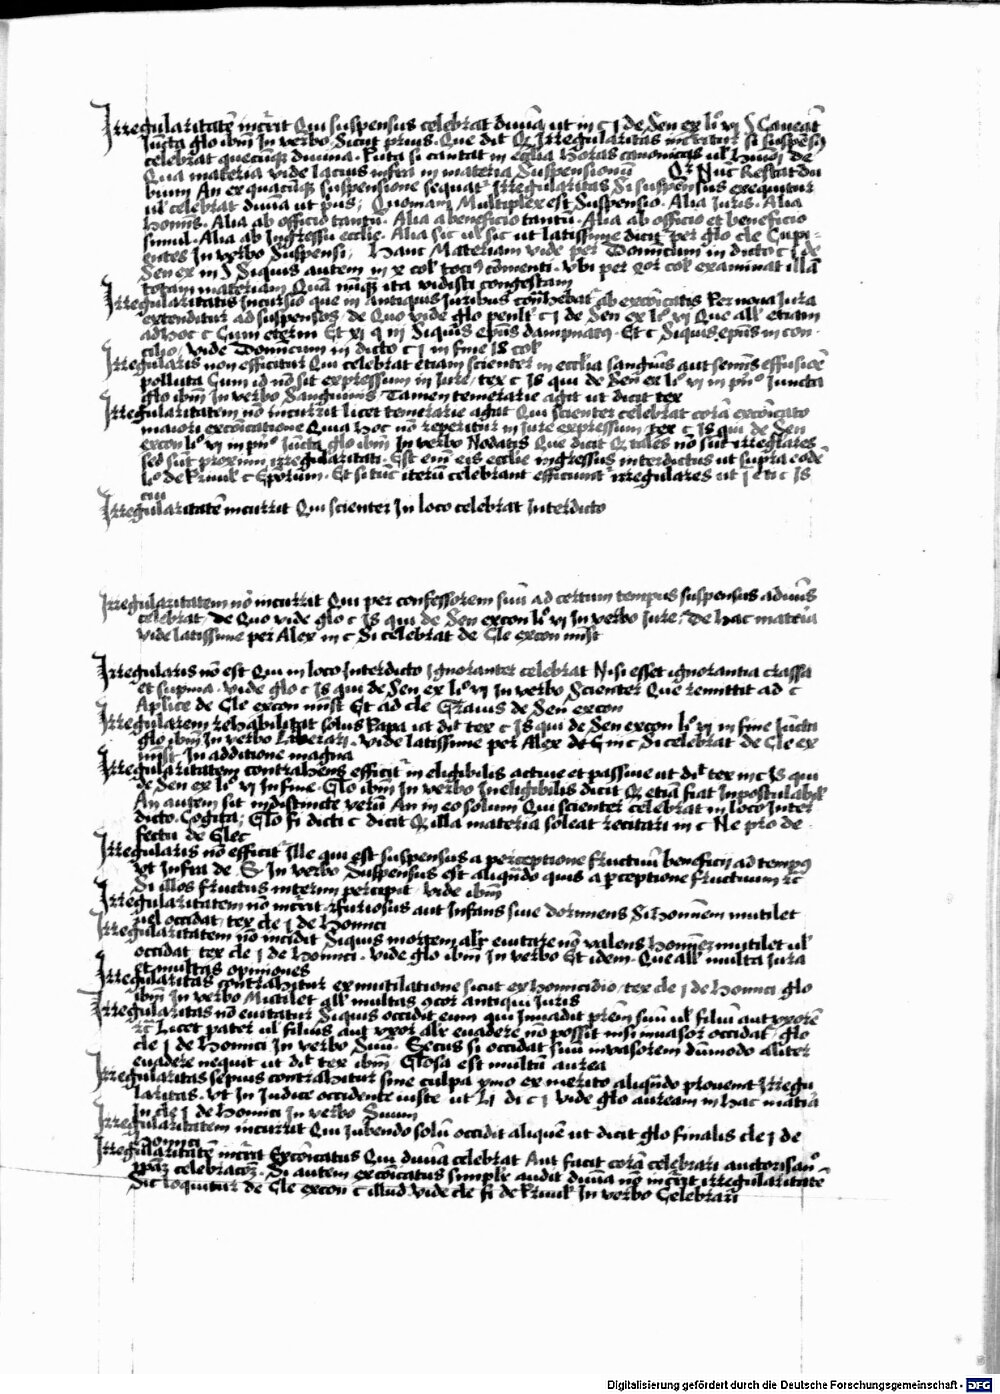 Irregularitatē incurrit Qui suspensus celebrat diuīa ut in c j de Sen ex li° vj § Caueāt
Iūcta glo ibm̄ In verbo Sicut prius. Que dit Qz Irregularitas incurritur si suspēsꝰ
celebrat quecūqz diuina. Puta si cantat in ecclīa horas canonicas ul' hmōi de
Qua materia vide lacius infra in materia Suspensionū Qr Nūc Restat du
bium An ex quacūqz suspensione sequat' Irregularitas Si suspensus exequitur
ul' celebrat diuīa ut pus; Quoniam Multiplex est Suspensio. Alia Iuris. Alia
hominis. Alia ab officio tantū. Alia a beneficio tantū. Alia ab officio et beneficio
simul. Alia ab Ingressu ecclie. Alia sic ul' sic ut latissime dicit' per glo cle Cupi-
entes In verbo Suspensi; Hanc Materiam vide per Dominicum in dicto c j de
Sen ex in § Siquis autem in x col' tociꝰ cōmenti. Vbi per qor col' examinat illā
totam materiam Quā nūqz ita vidisti congestam
Irregularitatis Incursio que in Antiquis Iuribus cōtrahebat' ab excōicatis Per noua Iura
extenditur ad suspensos, de Quo vide glo penlt' c j de Sen ex li° vj Que all' etiam
ad hoc c Cum eterni Et xj q iij Siquis ep̄us dampnatꝰ. Et c Siquis ep̄us in con-
cilio, vide Dominicum in dicto c j in fine is col'
Irregularis non efficitur Qui celebrat etiam scienter in ecclīa sangūis aut semīs effusiōe
polluta Cum id nō sit expressum in Iure, tex c Is qui de Sen ex li° vj in prin° Iuncta
glo ibm̄ In verbo Sanguinis. Tamen temerarie agit ut dicit tex
Irregularitatem nō incurrit licet temerarie agat Qui scienter celebrat corā excōicato
maiori excōicatione Quia hoc nō reperitur in Iure expressum tex c Is qui de Sen
excon li° vj in prin° Iūcta glo ibm̄ In verbo Nodatis Que dicit Qz tales nō sūt irreglares
sed sūt proximi irregularitati. Est enī eis ecclie ingressus interdictus ut supra eodē
li° de Priuil' c Eporum. Et si tūc iterū celebrant efficiunt' irregulares ut j eti c Is
cui
Irregularitatē incurrit Qui scienter In loco celebrat Interdicto
Irregularitatem nō incurrit Qui per confessorem suū ad certum tempus suspensus a diuīs
celebrat, de Quo vide glo c Is qui de Sen excon li° vj In verbo Iure; De hac mat'ia
vide latissime per Alex in c Si celebrat de Cle excon minst
Irregularis nō est Qui in loco Interdicto ignoranter celebrat Nisi esset ignorantia crassa
et supina. vide glo c Is qui de Sen ex li° vj In verbo Scienter Que remittit ad c
Aplice de Cle excon minst Et ad cle Grauis de Sen excon
Irregularem rehabilitat solus Papa ut dit tex c Is qui de Sen excon li° vj in fine Iūcta
glo ibm̄ In verbo Liberari. vide latissime per Alex de in c Si celebrat de Cle ex
minst In additione magna
Irregularitatem contrahens efficit' in eligibilis actiue et passiue ut dit tex in c Is qui
de Sen ex li° vj In fine. Glo ibm̄ In verbo Ineligibilis dicit Qz etiā fiat Inpostulabil'
An autem sit indistincte verū An in eo solum Qui scienter celebrat in loco Inter
dicto. Cogita; Glo fi dicti c dicit Qz illa materia soleat recitari in c Ne pro de-
fectu de Elec
Irregularis nō efficit' Ille qui est suspensus a perceptione fructuū beneficij ad tempꝰ
Vt Infra de S In verbo Suspensus est aliqn̄do quis a p̄ceptione fructuum rc̄
Si illos fructus interim percipit. vide ibm̄
Irregularitatem nō incurrit furiosus aut Infans siue dormiens Si hominem mutilet
uel occidat, tex cle j de Homici
Irregularitatem nō incidit Siquis mortem al'r euitare nō valens hominē mutilet ul'
occidat tex cle j de Homici. vide glo ibm̄ In verbo Et idem. Que all' multa Iura
et multas opiniones
Irregularitas contrahitur ex mutilatione sicut ex homicidio, tex cle j de Homici glo
ibm̄ In verbo Mutilet all' multas 9cor antiqui Iuris
Irregularitas nō euitatur Siquis occidit eum qui Inuadit prēm suū ul' filiū aut vxorē
rc̄ Licet pater ul' filius aut vxor al'r euadere nō possit nisi inuasor occidat' glo
cle j de Homici In verbo Suū. Secus si occidat suū inuasorem dūmodo aliter
euadere nequit ut dit tex ibm̄ Glosa est multū aurea
Irregularitas sepius contrahitur sine culpa ymo ex merito aliqn̄do prouenit Irregu
laritas. vt In Iudice occidente iuste ut Lj di c j vide glo auream in hac mat'ia
In cle j de Homici In verbo Suum
Irregularitatem incurrit Qui Iubendo solū occidit aliquē ut dicit glo finalis cle j de
Homici
Irregularitatē incurrit Excōicatus Qui diuīa celebrat Aut facit corā celebrari
celebracōz. Si autem excōicatus simpl'r audit diuīa nō incurrit irregularitatē
Sic loquitur de Cle excon c illud vide cle fi de Priuil' In verbo Celebrari
Digitalisierung gefördert durch die Deutsche Forschungsgemeinschaft - DFG